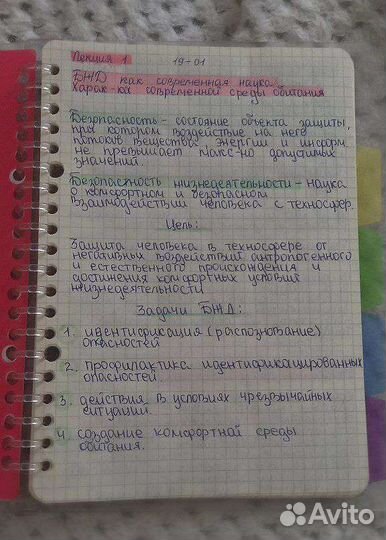 Лекция 1 19-01
БЖД как современная наука.
Харак-ка современной среды обитания
Безопасность - состояние объекта защиты,
при котором воздействие на него
потоков веществ, энергии и информ.
не превышает макс-но допустимых
значений.
Безопасность жизнедеятельности - наука
о комфортном и безопасном
взаимодействии человека с техносфер.
Цель:
Защита человека в техносфере от
негативных воздействий антропогенного
и естественного происхождения и
достижения комфортных условий
жизнедеятельности
Задачи БЖД:
1. идентификация (распознование)
опасностей
2. профилактика идентифицированных
опасностей.
3. действия в условиях чрезвычайных
ситуации.
4. создание комфортной среды
обитания.
Avito